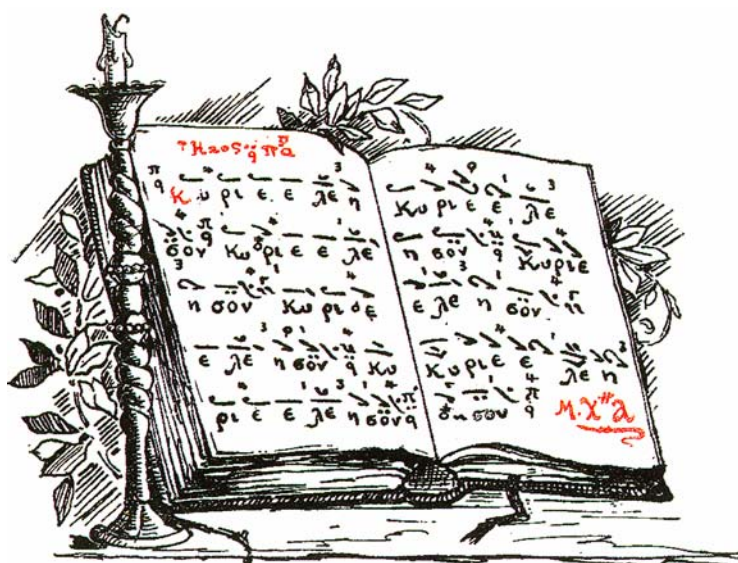 Ηχος q πα
Κ υ ρι ε ε λε η
σον Κυ ρι ε ε λε
η σον Κυ ρι ε
ε λε η σον Κυ
ρι ε ε λε η σον
Κυ ρι ε ε λε
η σον Κυ ρι ε
ε λε η σον
Κυ ρι ε ε λε η
η σον